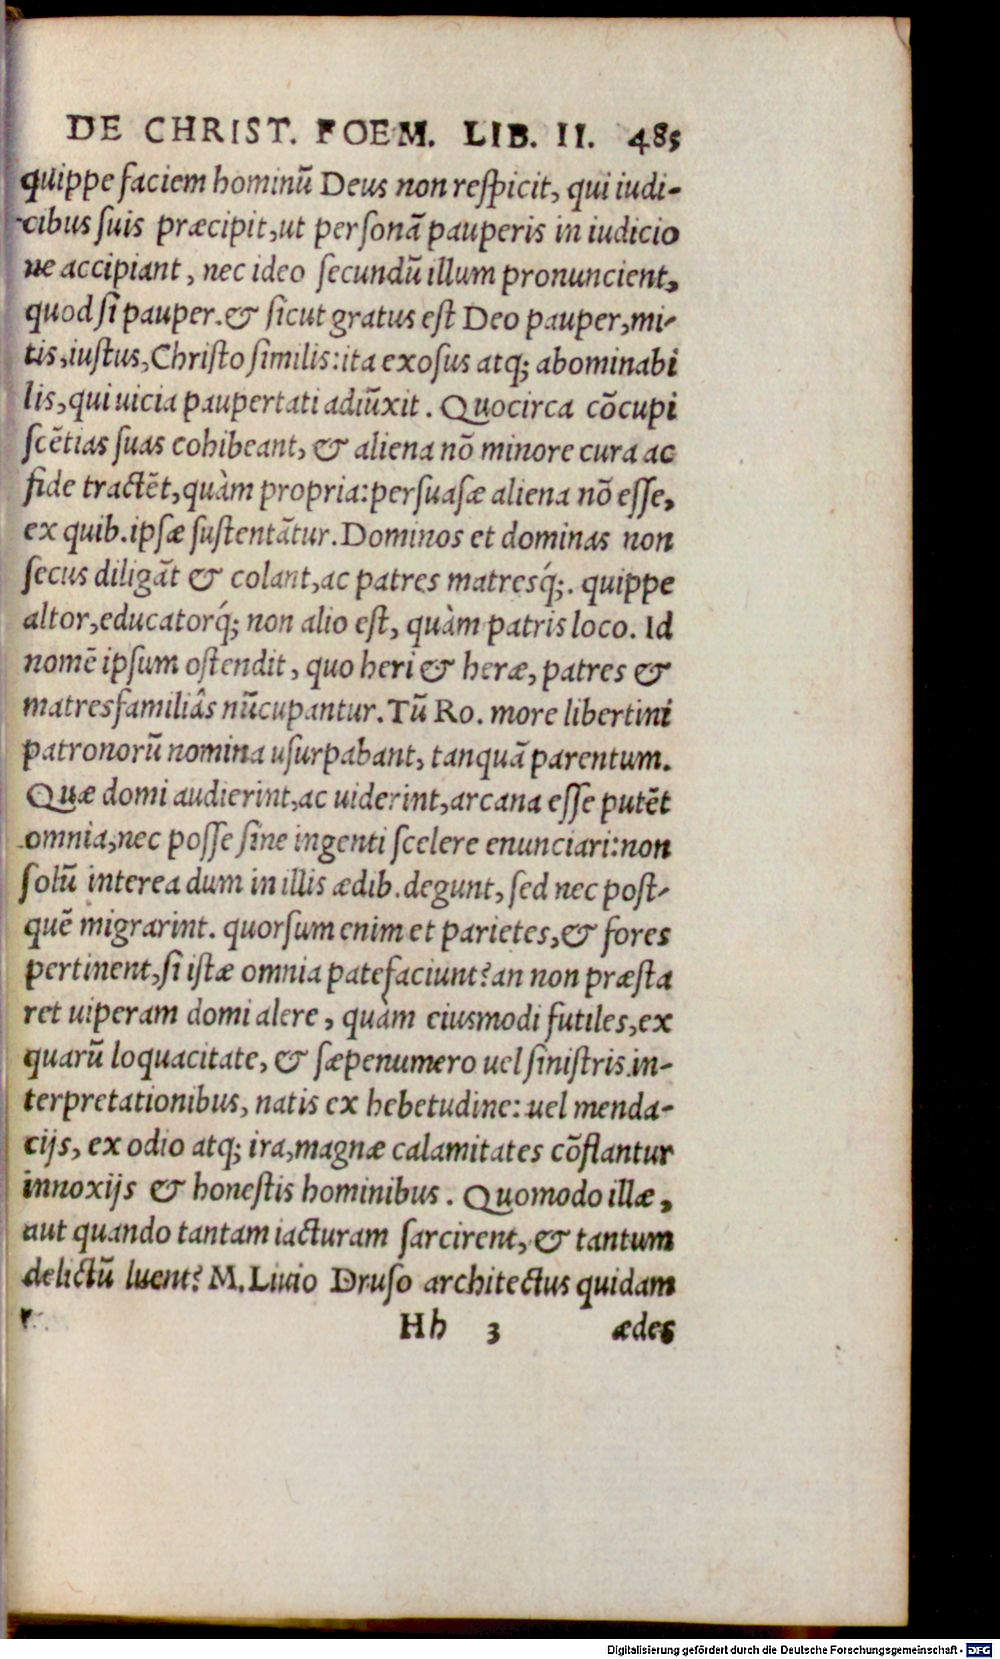 DE CHRIST. FOEM. LIB. II. 485
quippe faciem hominū Deus non respicit, qui iudi-
cibus suis præcipit, ut personā pauperis in iudicio
ne accipiant, nec ideo secundū illum pronuncient,
quod sī pauper. & sicut gratus est Deo pauper, mi-
tis, iustus, Christo similis: ita exosus atq; abominabi
lis, qui uicia paupertati adiūxit. Quocirca cōcupi
scētias suas cohibeant, & aliena nō minore cura ac
fide tractēt, quàm propria: persuasæ aliena nō esse,
ex quib. ipsæ sustentātur. Dominos et dominas non
secus diligāt & colant, ac patres matresq́;. quippe
altor, educatorq́; non alio est, quàm patris loco. Id
nomē ipsum ostendit, quo heri & heræ, patres &
matresfamiliâs nūcupantur. Tū Ro. more libertini
patronorū nomina usurpabant, tanquā parentum.
Quæ domi audierint, ac uiderint, arcana esse putēt
omnia, nec posse sine ingenti scelere enunciari: non
solū interea dum in illis ædib. degunt, sed nec post-
quē migrarint. quorsum enim et parietes, & fores
pertinent, si istæ omnia patefaciunt? an non præsta
ret uiperam domi alere, quàm eiusmodi futiles, ex
quarū loquacitate, & sæpenumero uel sinistris in-
terpretationibus, natis ex hebetudine: uel menda-
cijs, ex odio atq; ira, magnæ calamitates cōflantur
innoxijs & honestis hominibus. Quomodo illæ,
aut quando tantam iacturam sarcirent, & tantum
delictū luent? M. Liuio Druso architectus quidam
Hh 3 ædes
Digitalisierung gefördert durch die Deutsche Forschungsgemeinschaft - DFG